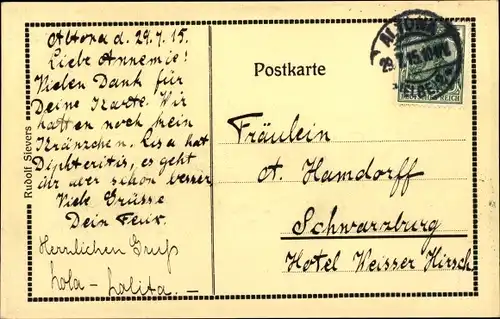 Altona d. 29.7.15.
Liebe Annemie!
Vielen Dank für
Deine Karte. Wir
hatten noch kein
Kränzchen. Lisa hat
Diphteritis, es geht
ihr aber schon besser
Viele Grüsse
Dein
Herzlichen Gruß
Lola - Lolita. -
Rudolf Sievers
Postkarte
ALTONA
29.7.15
(ELBE)
REICH
Fräulein
A. Hamdorff
Schwarzburg
Hotel Weisser Hirsch